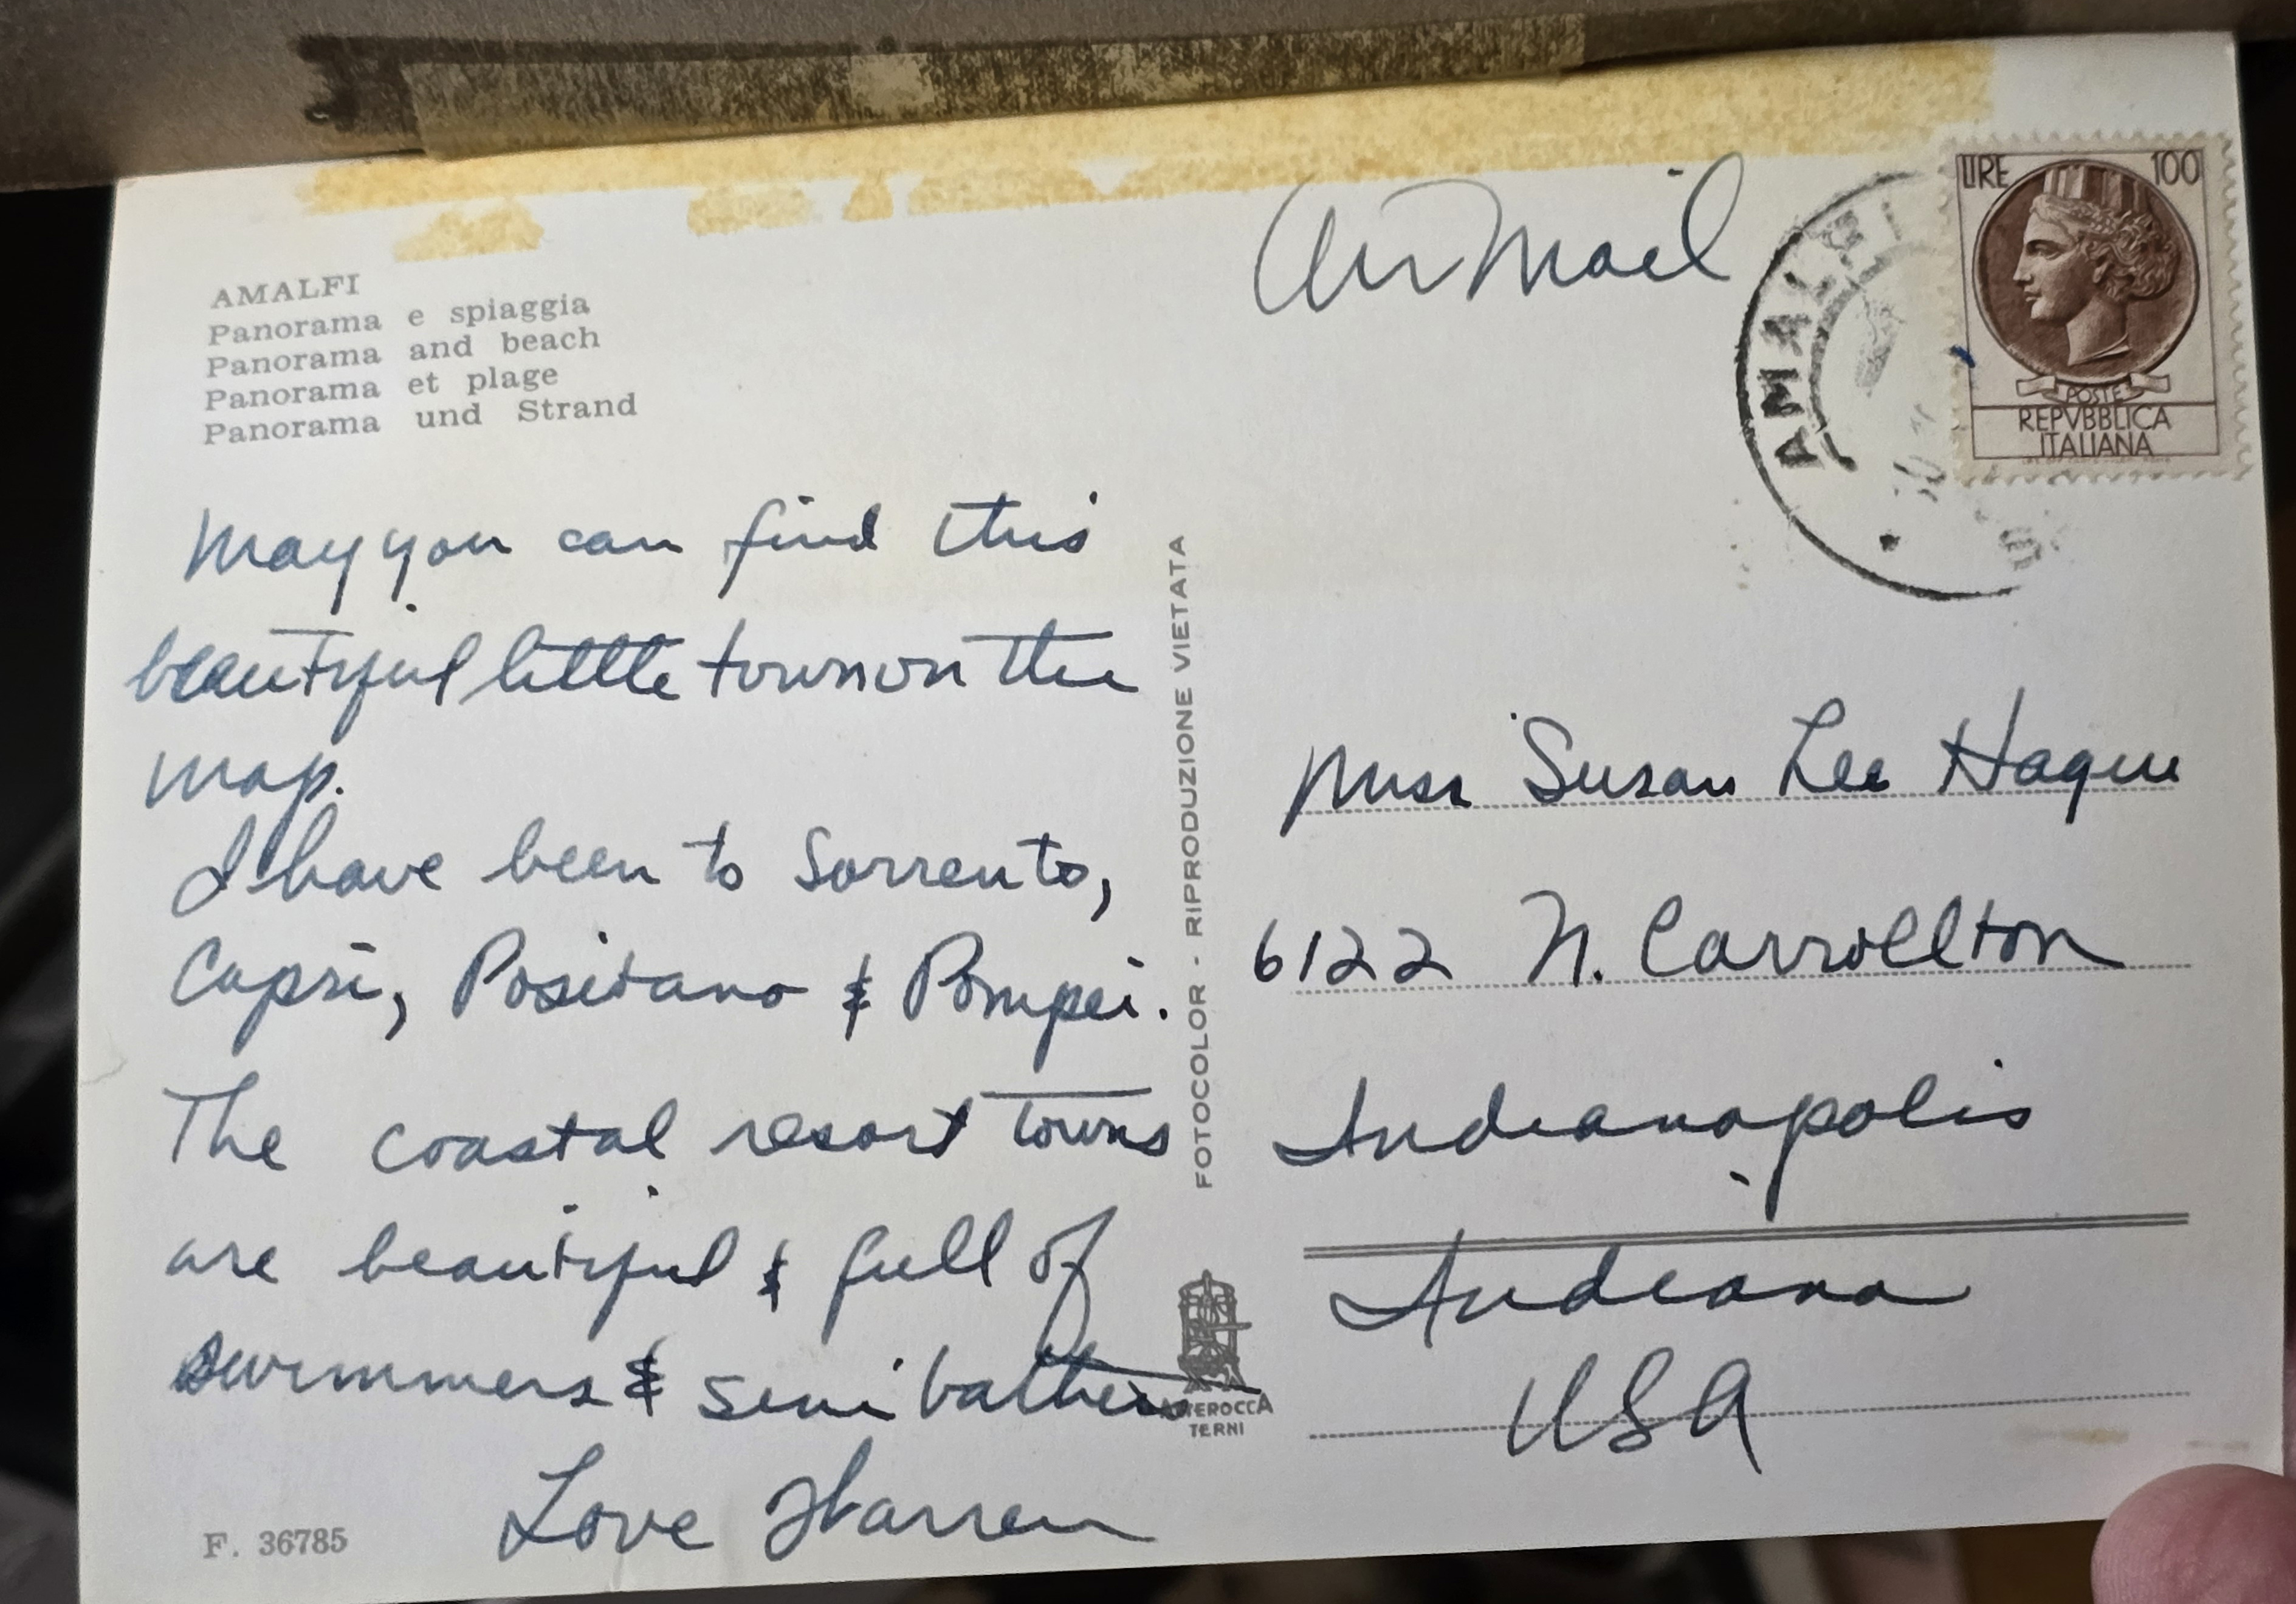 AMALFI
Panorama e spiaggia
Panorama and beach
Panorama et plage
Panorama und Strand
May you can find this
beautiful little town on the
map.
I have been to Sorrento,
Capri, Positano & Pompei.
The coastal resort towns
are beautiful & full of
swimmers & semi bathers
Love
F. 36785
FOTOCOLOR - RIPRODUZIONE VIETATA
TERNI
Air Mail
AMALFI
LIRE 100
POSTE
REPVBBLICA
ITALIANA
Miss Susan Lee Hague
6122 N. Carrollton
Indianapolis
Indiana
USA